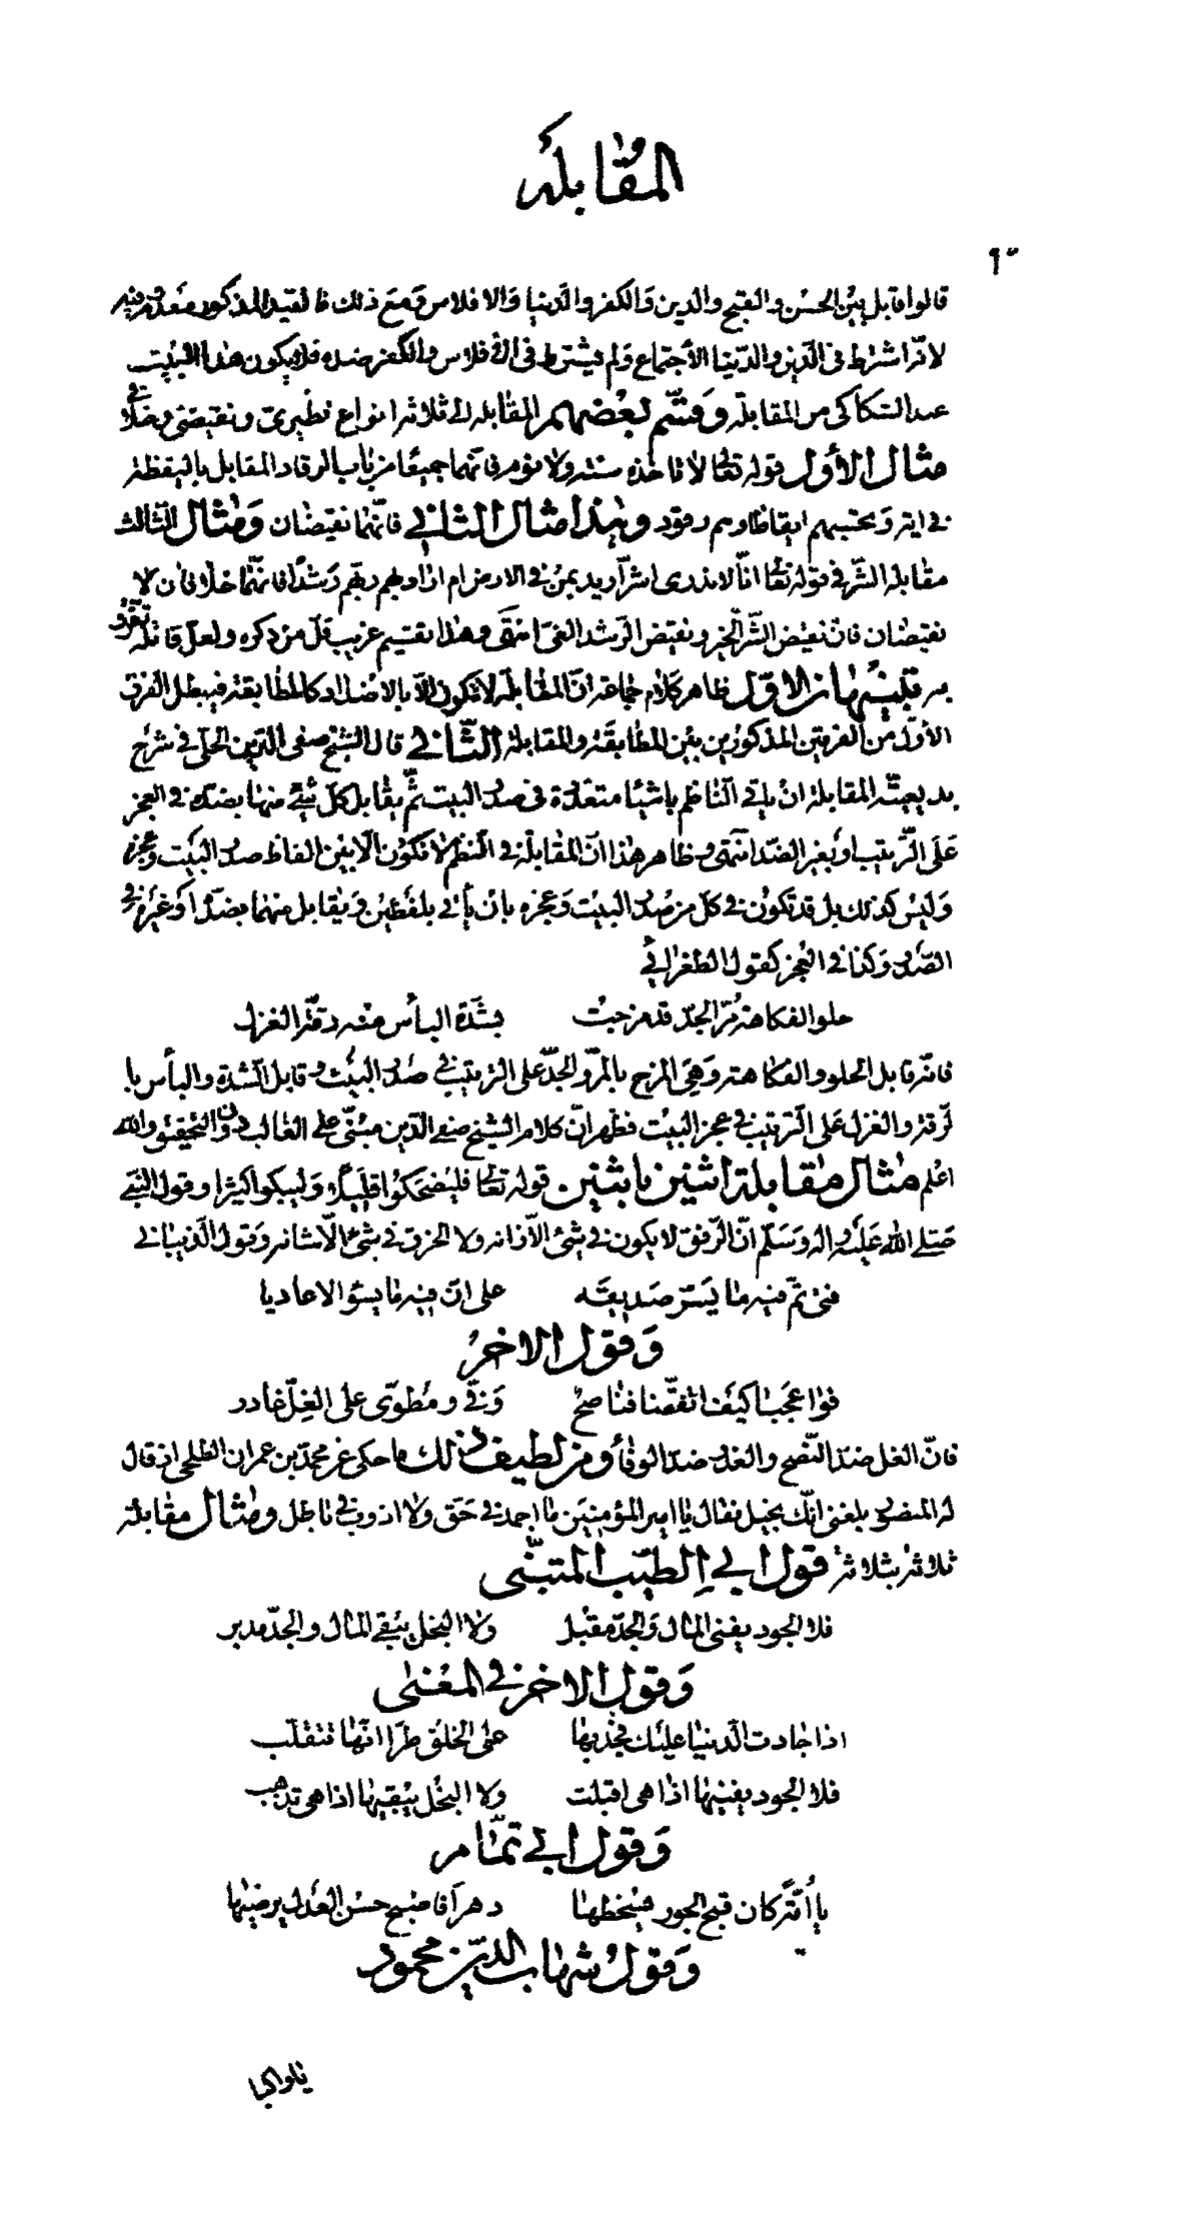 المقابلة
٩٣
قالوا قابل بين الحسن والقبح والدين والكفر والدنيا والافلاس ومع ذلك فالقيد المذكور معدوم فيه
لانه اشترط في الدين والدنيا الاجتماع ولم يشترط في الافلاس والكفر ضده فلا يكون هذا البيت
عند السكاكي من المقابلة وقسم بعضهم المقابله الى ثلاثه انواع نظيري ونقيضي وخلافي
مثال الأول قوله تعالى لا تاخذه سنة ولا نوم فانهما جميعا من باب الرقاد المقابل باليقظة
في اية وتحسبهم ايقاظا وهم رقود وهذا مثال الثاني فانهما نقيضان ومثال الثالث
مقابلة الشر في قوله تعالى انا لا ندري اشر اريد بمن في الارض ام اراد بهم ربهم رشدا فانهما خلافان لا
نقيضان فان نقيض الشر الخير ونقيض الرشد الغي انتهى وهذا تقسيم غريب قل من ذكره ولعل قائله تفرد
به تنبيهان الاول ظاهر كلام جماعة ان المقابلة لا تكون الا بالاضداد كالمطابقة فيبطل الفرق
الأول من الفرقين المذكورين بين المطابقة والمقابلة الثاني قال الشيخ صفي الدين الحلي في شرح
بديعيته المقابلة ان ياتي الناظم باشيا متعددة في صدر البيت ثم يقابل كل شيئ منها بضده في العجز
على الترتيب او بغير الضد انتهى وظاهر هذا ان المقابلة في النظم لا تكون الا بين الفاظ صدر البيت وعجزه
وليس كذلك بل قد تكون في كل من صدر البيت وعجزه بان يأتي بلفظين ويقابل منهما بضد او غيره في
الصدر وكذا في العجز كقول الطغرائي
حلو الفكاهة مر الجد قد مزجت بشدة البأس منه رقة الغزل
فانه قابل الحلو والفكاهة وهي المزح بالمر والجد على الترتيب في صدر البيت وقابل الشدة والبأس با
لرقة والغزل على الترتيب في عجز البيت فظهر ان كلام الشيخ صفي الدين مبني على الغالب دون التحقيق والله
اعلم مثال مقابلة اثنين باثنين قوله تعالى فليضحكوا قليلا وليبكوا كثيرا وقول النبي
صلى الله عليه واله وسلم ان الرفق لا يكون في شئ الا زانه ولا الخرق في شئ الا شانه وقول الذبياني
فتى تم فيه ما يسر صديقه على ان فيه ما يسوء الاعاديا
وقول الاخر
فوا عجبا كيف اتفقنا فناصح وفي ومطوى على الغل غادر
فان الغل ضد النصح والغدر ضد الوفاء ومن لطيف ذلك ما حكى عن محمد بن عمران الطلحي اذ قال
له المنصور بلغني انك بخيل فقال يا امير المؤمنين ما اجمد في حق ولا اذوب في باطل ومثال مقابلة
ثلاثة بثلاثة قول ابي الطيب المتنبي
فلا الجود يفني المال والجد مقبل ولا البخل يبقي المال والجد مدبر
وقول الاخر في المعنى
اذا جادت الدنيا عليك فجد بها على الخلق طرا انها تتقلب
فلا الجود يفنيها اذا هي اقبلت ولا البخل يبقيها اذا هي تذهب
وقول ابي تمام
يا أمة كان قبح الجور يسخطها دهرا فاصبح حسن العدل يرضيها
وقول شهاب الدين محمود